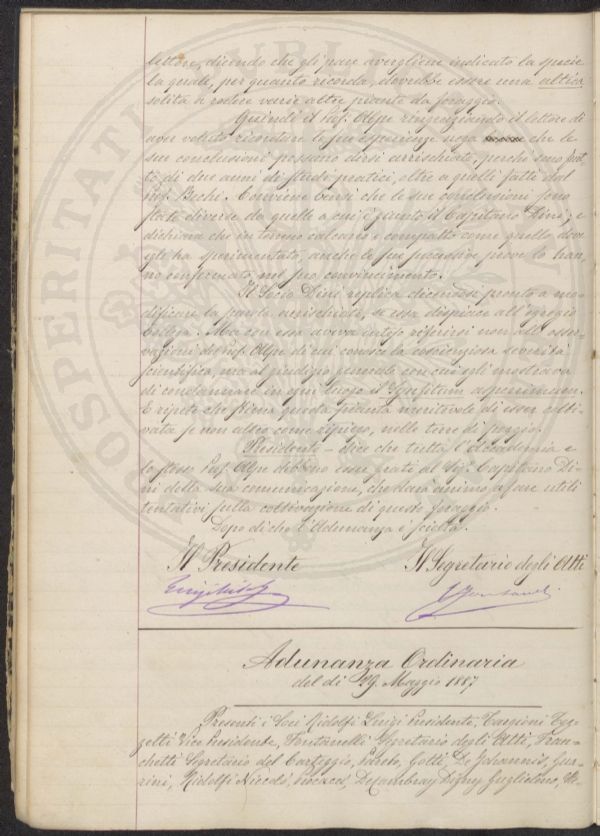 lettore, dicendo che gli pare averglene indicato la specie
la quale, per quanto ricorda, dovrebbe essere una altica
solita a rodere varie altre piante da foraggio.
Quindi il Prof. Alpe ringraziando il lettore di
aver voluto ricordare le sue esperienze nega che le
sue conclusioni possano dirsi arrischiate, perché sono frut-
to di due anni di studi pratici, oltre a quelli fatti dal
Prof. Bechi. Conviene bensì che le sue conclusioni sono
state diverse da quelle a cui è giunto il Capitano Dini, e
dichiara che in terreno calcareo e compatto come quello dove
egli ha sperimentato, anche le sue successive prove lo han-
no confermato nel suo convincimento.
Il Socio Dini replica dicendosi pronto a mo-
dificare la parola arrischiate, se essa dispiace all'egregio
Collega. Ma con essa aveva inteso riferirsi non alle osser-
vazioni del Prof. Alpe di cui conosce la coscienziosa severità
scientifica, ma al giudizio generale con cui egli mostrava
di condannare in ogni luogo il Symfitum asperrimum.
E ripete che stima questa pianta meritevole di esser colti-
vata se non altro come ripiego, nelle terre di poggio.
Presidente – dice che tutta l'Accademia e
lo stesso Prof. Alpe debbono esser grati al Sig. Capitano Di-
ni della sua comunicazione, che darà animo a fare utili
tentativi sulla coltivazione di questo foraggio.
Dopo di che l'Adunanza è sciolta.
Il Presidente Il Segretario degli Atti
Adunanza Ordinaria
del dì 29 Maggio 1887
Presenti i Soci Ridolfi Luigi Presidente, Targioni Toz-
zetti Vice Presidente, Fontanelli Segretario degli Atti, Fran-
chetti Segretario del Carteggio, Pareto, Gotti, De Johannis, Guar-
rini, Ridolfi Niccolò, Digny Guglielmo,